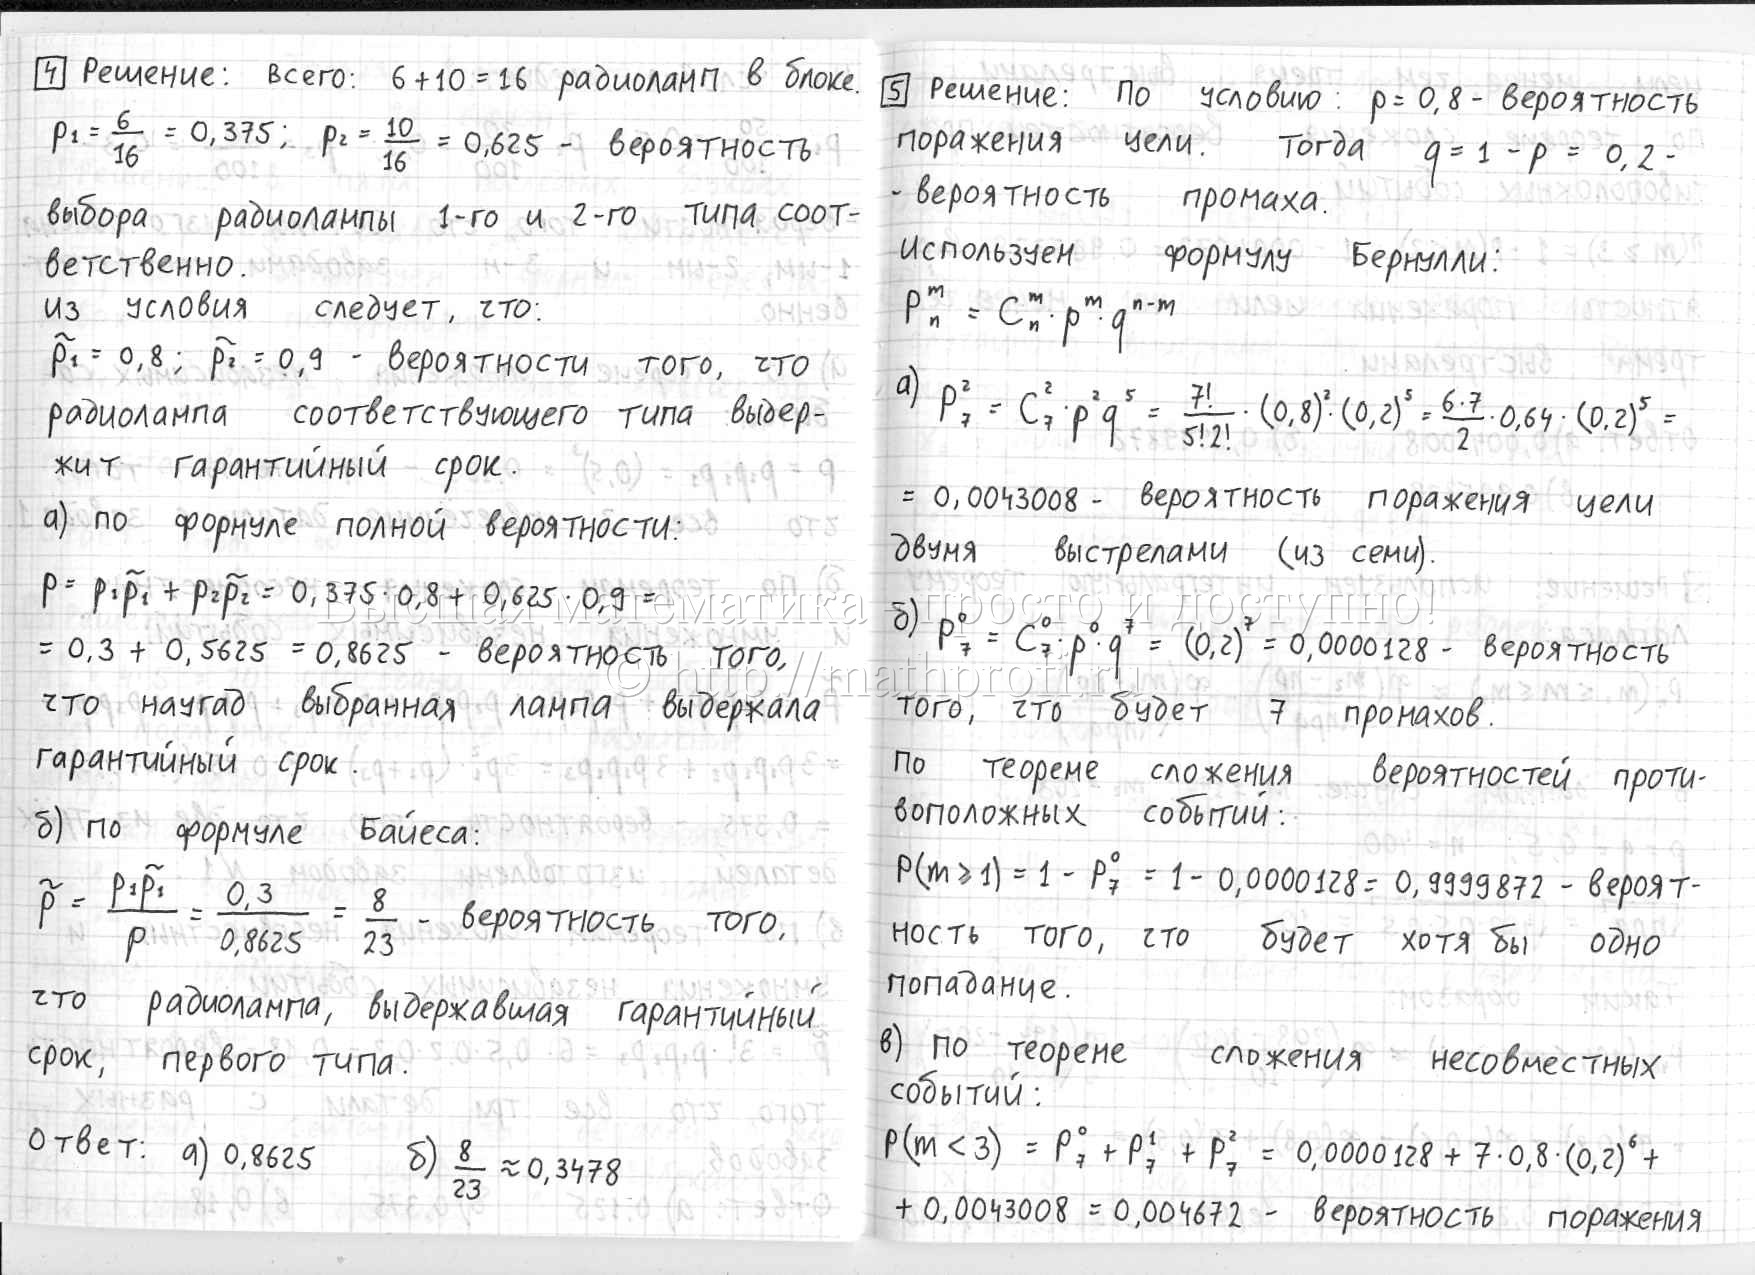 4 Решение: всего: 6+10=16 радиоламп в блоке.
p₁ = 6/16 = 0,375; p₂ = 10/16 = 0,625 - вероятность
выбора радиолампы 1-го и 2-го типа соот-
ветственно.
Из условия следует, что:
p̃₁ = 0,8; p̃₂ = 0,9 - вероятности того, что
радиолампа соответствующего типа выдер-
жит гарантийный срок.
а) По формуле полной вероятности:
p = p₁p̃₁ + p₂p̃₂ = 0,375·0,8 + 0,625·0,9 =
= 0,3 + 0,5625 = 0,8625 - вероятность того,
что наугад выбранная лампа выдержала
гарантийный срок.
б) По формуле Байеса:
p̃ = p₁p̃₁/p = 0,3/0,8625 = 8/23 - вероятность того,
что радиолампа, выдержавшая гарантийный
срок, первого типа.
Ответ: а) 0,8625 б) 8/23 ≈ 0,3478
5 Решение: По условию: p = 0,8 - вероятность
поражения цели. Тогда q = 1 - p = 0,2 -
- вероятность промаха.
Используем формулу Бернулли:
Pₙᵐ = Cₙᵐ · pᵐ · qⁿ⁻ᵐ
а) P₇² = C₇² · p² q⁵ = 7!/5!2! · (0,8)² · (0,2)⁵ = 6·7/2 · 0,64 · (0,2)⁵ =
= 0,0043008 - вероятность поражения цели
двумя выстрелами (из семи).
б) P₇⁰ = C₇⁰ · p⁰ · q⁷ = (0,2)⁷ = 0,0000128 - вероятность
того, что будет 7 промахов.
По теореме сложения вероятностей проти-
воположных событий:
P(m ⩾ 1) = 1 - P₇⁰ = 1 - 0,0000128 = 0,9999872 - вероят-
ность того, что будет хотя бы одно
попадание.
в) По теореме сложения несовместных
событий:
P(m < 3) = P₇⁰ + P₇¹ + P₇² = 0,0000128 + 7·0,8·(0,2)⁶ +
+ 0,0043008 = 0,004672 - вероятность поражения
Высшая математика – просто и доступно!
© http://mathprofi.ru